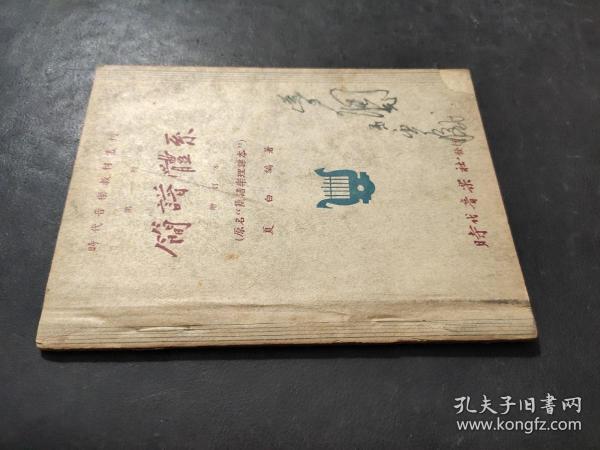 時代音樂教材叢刊
第一種
簡譜體系
增訂本
(原名“簡譜樂理課本”)
夏白編著
時代音樂社發行
孔夫子旧书网
www.kongfz.com